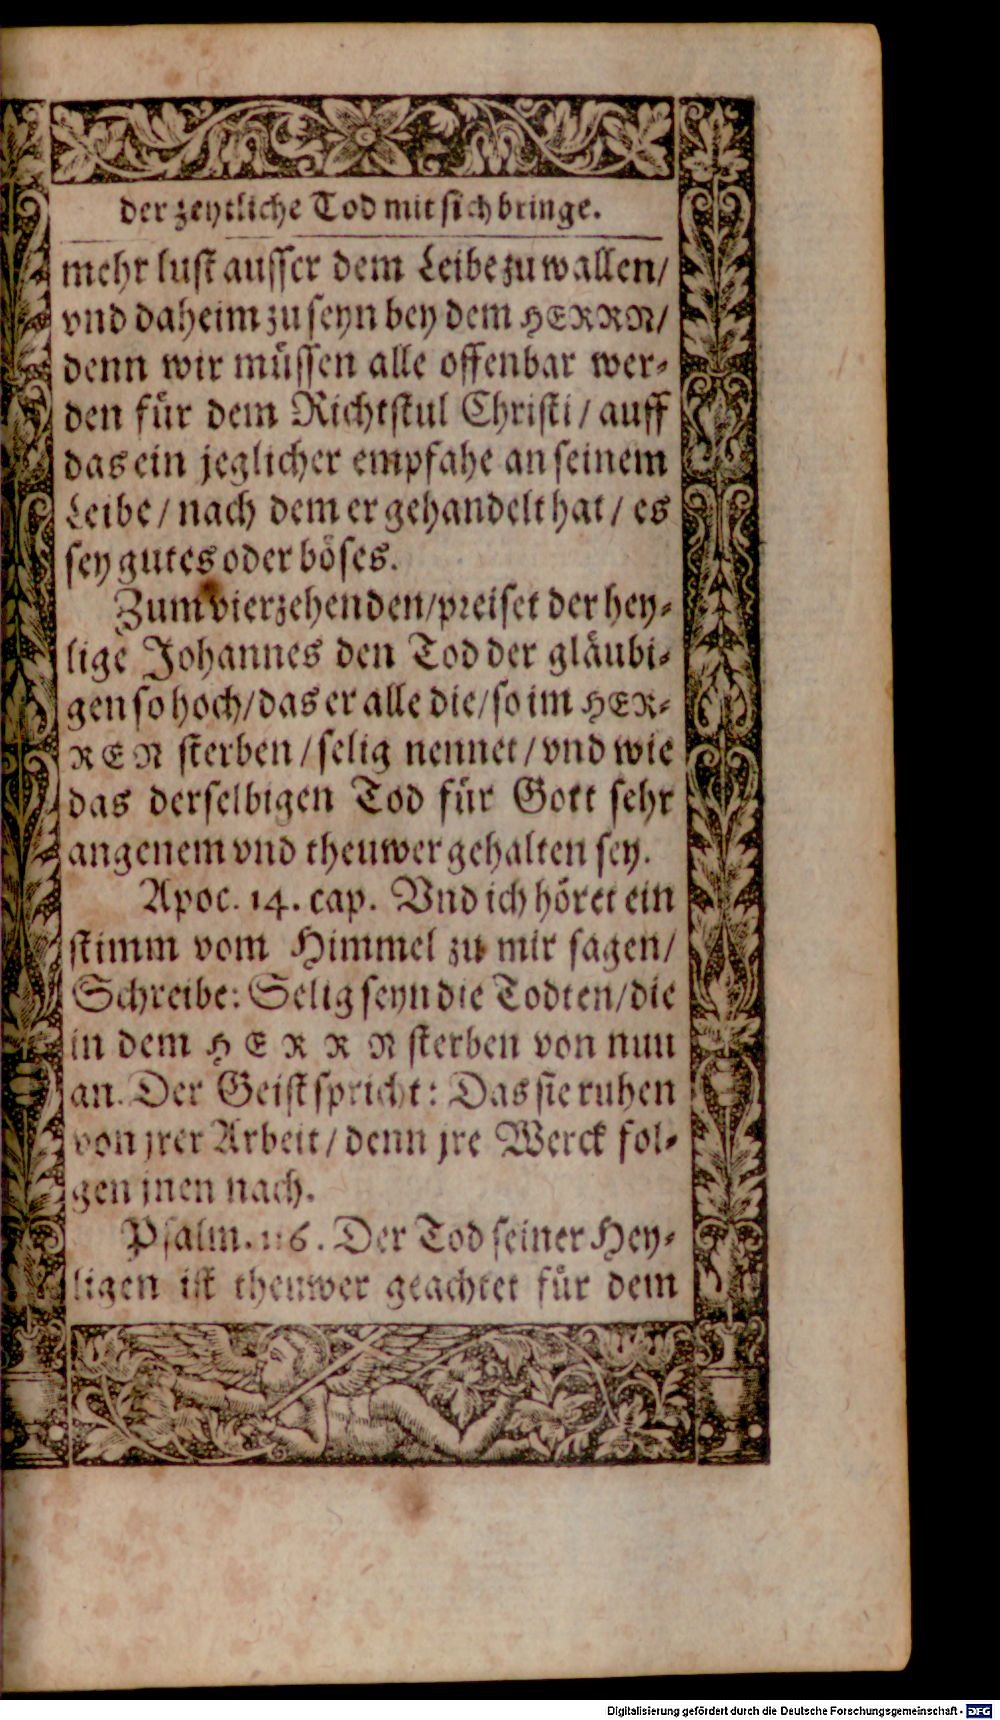 der zeytliche Tod mit sich bringe.
mehr lust ausser dem Leibe zu wallen/
vnd daheim zu seyn bey dem HERRN/
denn wir müssen alle offenbar wer-
den für dem Richtstul Christi/ auff
das ein jeglicher empfahe an seinem
Leibe/ nach dem er gehandelt hat/ es
sey gutes oder böses.
Zum vierzehenden/ preiset der hey-
lige Johannes den Tod der gläubi-
gen so hoch/ das er alle die/ so im HER-
REN sterben/ selig nennet/ vnd wie
das derselbigen Tod für Gott sehr
angenem vnd theuwer gehalten sey.
Apoc. 14. cap. Vnd ich höret ein
stimm vom Himmel zu mir sagen/
Schreibe: Selig seyn die Todten/ die
in dem HERRN sterben von nun
an. Der Geist spricht: Das sie ruhen
von jrer Arbeit/ denn jre Werck fol-
gen jnen nach.
Psalm. 116. Der Tod seiner Hey-
ligen ist theuwer geachtet für dem
Digitalisierung gefördert durch die Deutsche Forschungsgemeinschaft - DFG